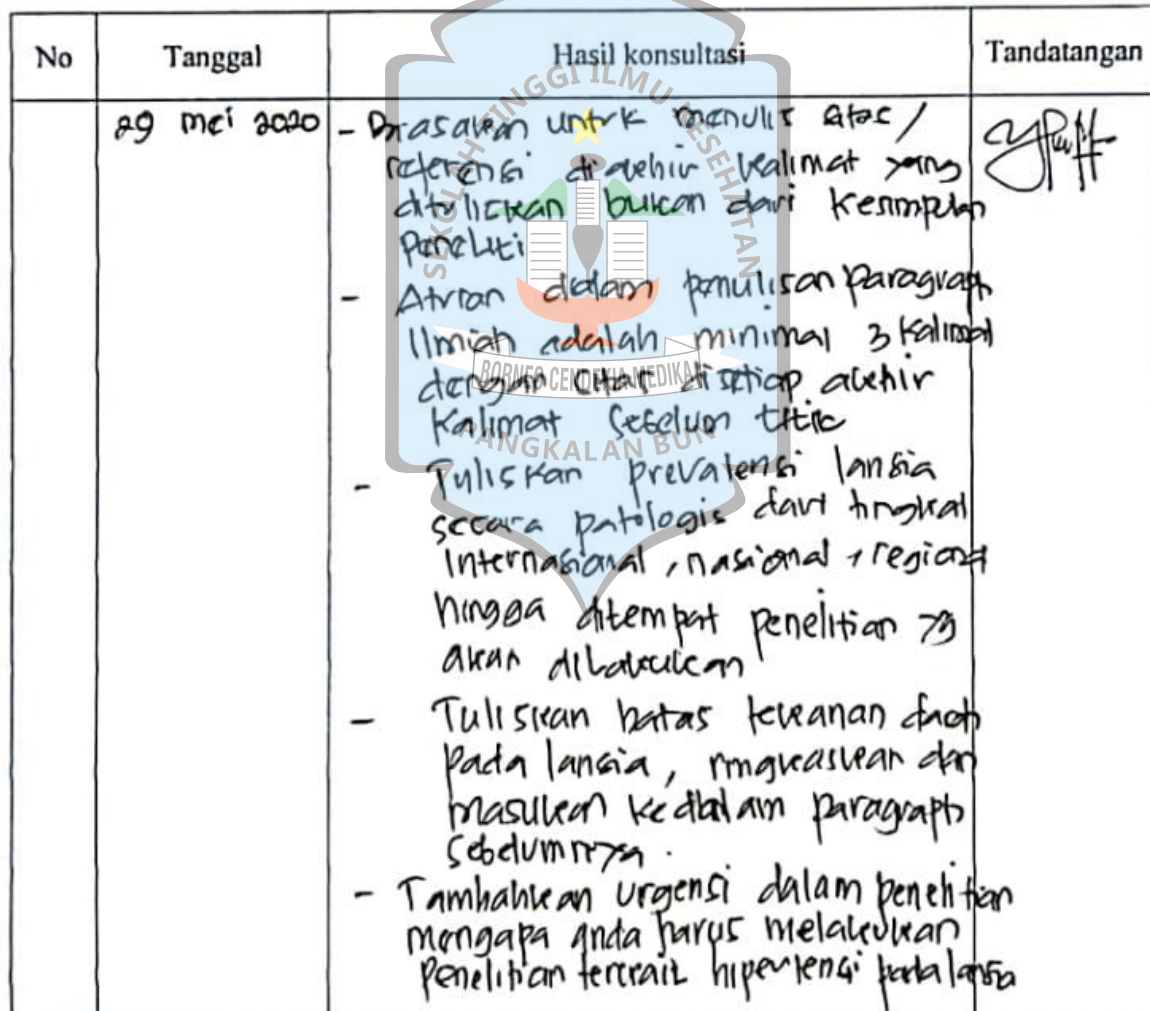 No Tanggal Hasil konsultasi Tandatangan
29 mei 2020 - Biasakan untuk menulis sitasi /
referensi diakhir kalimat yang
dituliskan bukan dari kesimpulan
Peneliti
- Aturan dalam penulisan paragraph
Ilmiah adalah minimal 3 kalimat
dengan sitasi disetiap akhir
Kalimat sebelum titik
- Tuliskan prevalensi lansia
secara patologis dari tingkat
Internasional, nasional, regional
hingga ditempat penelitian yg
akan dilakukan
- Tuliskan batas tekanan darah
pada lansia, ringkaskan dan
masukan kedalam paragraph
sebelumnya.
- Tambahkan urgensi dalam penelitian
mengapa anda harus melakukan
Penelitian terkait hipertensi pada lansia
SEKOLAH TINGGI ILMU KESEHATAN
BORNEO CENDEKIA MEDIKA
PANGKALAN BUN